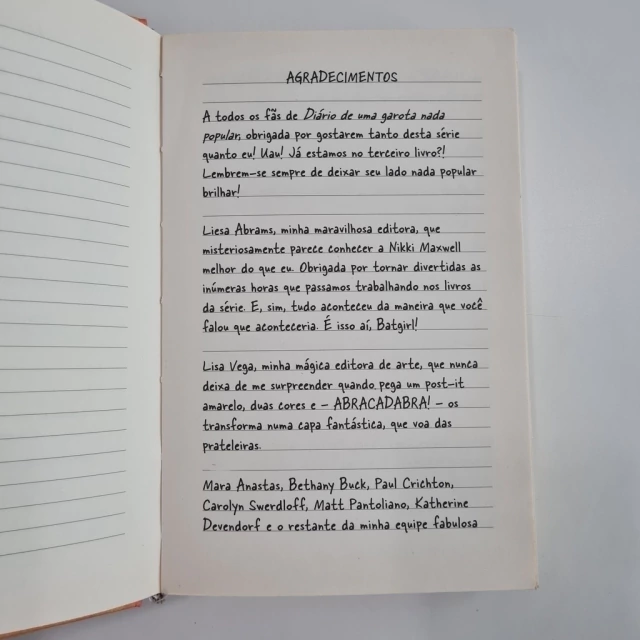 AGRADECIMENTOS
A todos os fãs de Diário de uma garota nada
popular, obrigada por gostarem tanto desta série
quanto eu! Uau! Já estamos no terceiro livro?!
Lembrem-se sempre de deixar seu lado nada popular
brilhar!
Liesa Abrams, minha maravilhosa editora, que
misteriosamente parece conhecer a Nikki Maxwell
melhor do que eu. Obrigada por tornar divertidas as
inúmeras horas que passamos trabalhando nos livros
da série. E, sim, tudo aconteceu da maneira que você
falou que aconteceria. É isso aí, Batgirl!
Lisa Vega, minha mágica editora de arte, que nunca
deixa de me surpreender quando pega um post-it
amarelo, duas cores e – ABRACADABRA! – os
transforma numa capa fantástica, que voa das
prateleiras.
Mara Anastas, Bethany Buck, Paul Crichton,
Carolyn Swerdloff, Matt Pantoliano, Katherine
Devendorf e o restante da minha equipe fabulosa